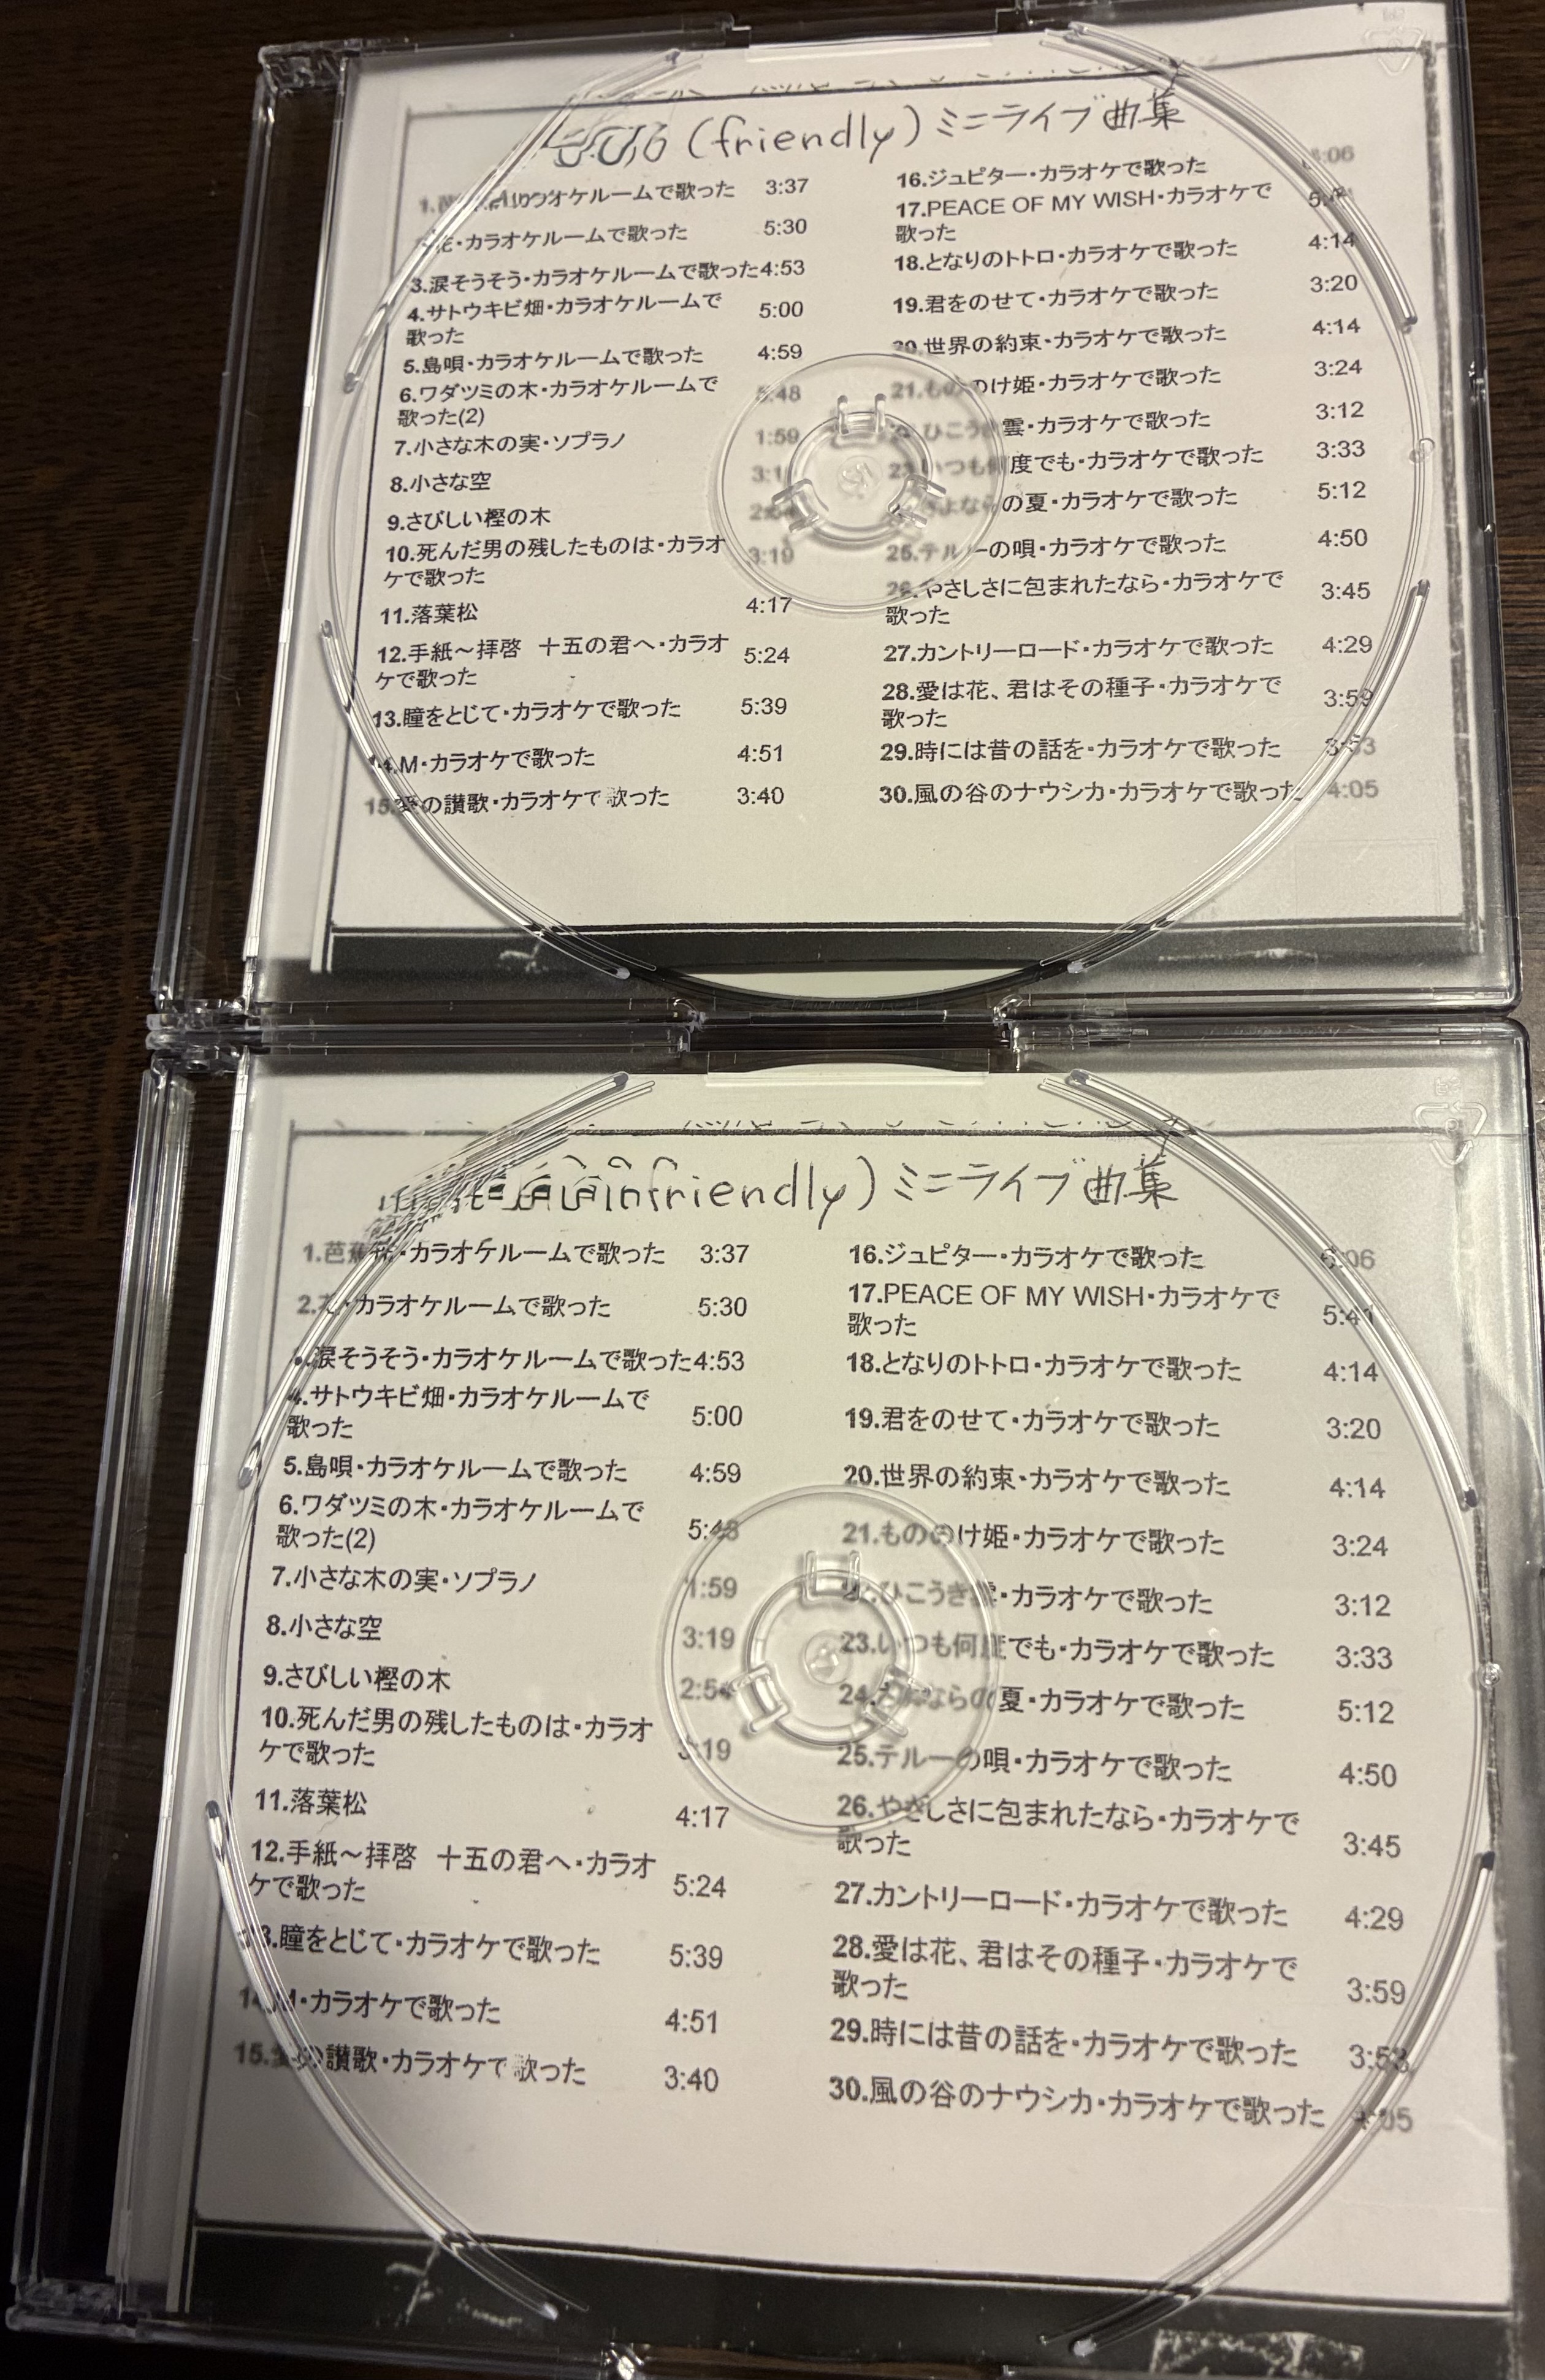 (friendly)ミニライブ曲集
カラオケルームで歌った 3:37
・カラオケルームで歌った 5:30
3.涙そうそう・カラオケルームで歌った4:53
4.サトウキビ畑・カラオケルームで
歌った 5:00
5.島唄・カラオケルームで歌った 4:59
6.ワダツミの木・カラオケルームで
歌った(2) 5:48
7.小さな木の実・ソプラノ 1:59
8.小さな空
9.さびしい樫の木
10.死んだ男の残したものは・カラオ
ケで歌った 3:19
11.落葉松 4:17
12.手紙～拝啓 十五の君へ・カラオ
ケで歌った 5:24
13.瞳をとじて・カラオケで歌った 5:39
M・カラオケで歌った 4:51
15.愛の讃歌・カラオケで歌った 3:40
16.ジュピター・カラオケで歌った :06
17.PEACE OF MY WISH・カラオケで
歌った
18.となりのトトロ・カラオケで歌った 4:14
19.君をのせて・カラオケで歌った 3:20
20.世界の約束・カラオケで歌った 4:14
21.もののけ姫・カラオケで歌った 3:24
ひこうき雲・カラオケで歌った 3:12
23.いつも何度でも・カラオケで歌った 3:33
さよならの夏・カラオケで歌った 5:12
25.テルーの唄・カラオケで歌った 4:50
26.やさしさに包まれたなら・カラオケで
歌った 3:45
27.カントリーロード・カラオケで歌った 4:29
28.愛は花、君はその種子・カラオケで
歌った 3:59
29.時には昔の話を・カラオケで歌った 3:53
30.風の谷のナウシカ・カラオケで歌った 4:05
friendly)ミニライブ曲集
1.芭蕉布・カラオケルームで歌った 3:37
2.花・カラオケルームで歌った 5:30
涙そうそう・カラオケルームで歌った4:53
4.サトウキビ畑・カラオケルームで
歌った 5:00
5.島唄・カラオケルームで歌った 4:59
6.ワダツミの木・カラオケルームで
歌った(2) 5:48
7.小さな木の実・ソプラノ 1:59
8.小さな空 3:19
9.さびしい樫の木 2:54
10.死んだ男の残したものは・カラオ
ケで歌った 3:19
11.落葉松 4:17
12.手紙～拝啓 十五の君へ・カラオ
ケで歌った 5:24
13.瞳をとじて・カラオケで歌った 5:39
14.M・カラオケで歌った 4:51
15.愛の讃歌・カラオケで歌った 3:40
16.ジュピター・カラオケで歌った 6:06
17.PEACE OF MY WISH・カラオケで
歌った 5:41
18.となりのトトロ・カラオケで歌った 4:14
19.君をのせて・カラオケで歌った 3:20
20.世界の約束・カラオケで歌った 4:14
21.もののけ姫・カラオケで歌った 3:24
ひこうき雲・カラオケで歌った 3:12
23.いつも何度でも・カラオケで歌った 3:33
24.さよならの夏・カラオケで歌った 5:12
25.テルーの唄・カラオケで歌った 4:50
26.やさしさに包まれたなら・カラオケで
歌った 3:45
27.カントリーロード・カラオケで歌った 4:29
28.愛は花、君はその種子・カラオケで
歌った 3:59
29.時には昔の話を・カラオケで歌った 3:53
30.風の谷のナウシカ・カラオケで歌った 4:05